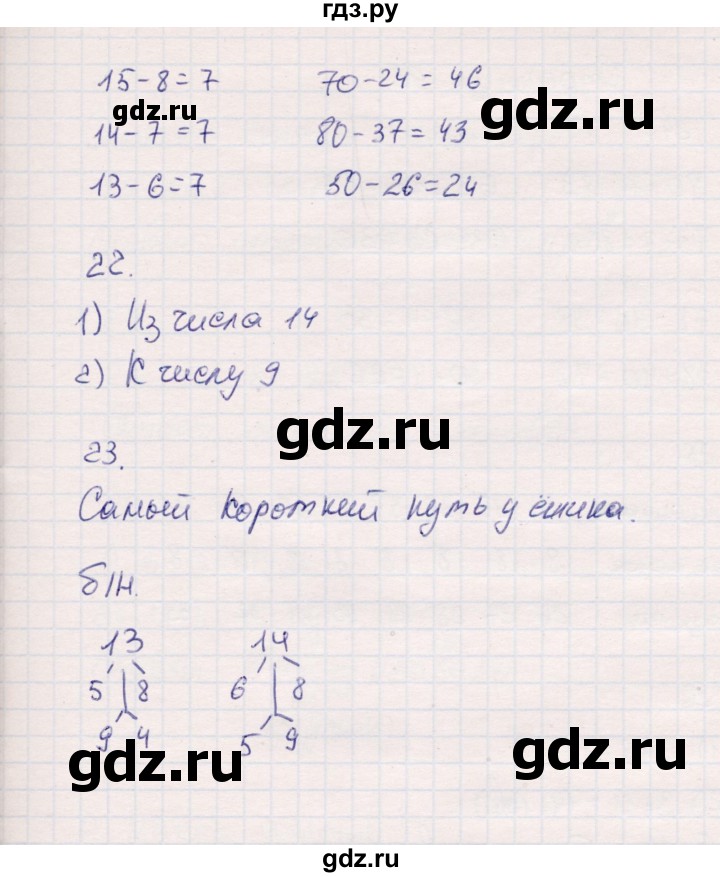 гдз.ру
15-8=7 70-24=46
gdz.ru
gdz.ru
14-7=7 80-37=43
13-6=7 50-26=24
22.
1) Из числа 14
2) К числу 9
gdz.ru
23.
Самый короткий путь у ёжика.
б/н.
13 14
5 8 6 8
9 4 5 9
gdz.ru
gdz.ru
gdz.ru